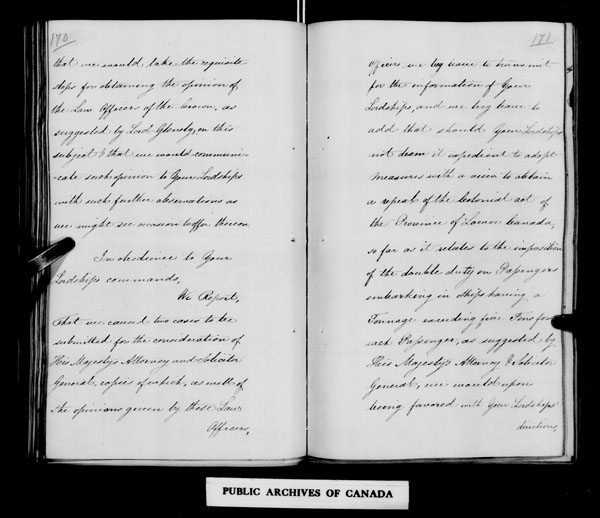 170
that we would take the requisite
steps for obtaining the opinion of
the Law Officers of the Crown, as
suggested by Lord Glenelg, on this
subject & that we would communi-
-cate such opinion to Your Lordships
with such further observations as
we might see occasion to offer thereon
In obedience to Your
Lordships commands,
We Report,
That we caused two cases to be
submitted for the consideration of
His Majesty's Attorney and Solicitor
General, copies of which, as well of
the opinions given by those Law
Officers,
171
Officers, we beg leave to transmit
for the information of Your
Lordships, and we beg leave to
add that should Your Lordships
not deem it expedient to adopt
measures with a view to obtain
a repeal of the Colonial act of
the Province of Lower Canada,
so far as it relates to the imposition
of the double duty on Passengers
embarking in Ships having a
Tonnage exceeding five Tons for
each Passenger, as suggested by
His Majesty's Attorney & Solicitor
General, we would upon
being favored with Your Lordships'
directions,
PUBLIC ARCHIVES OF CANADA